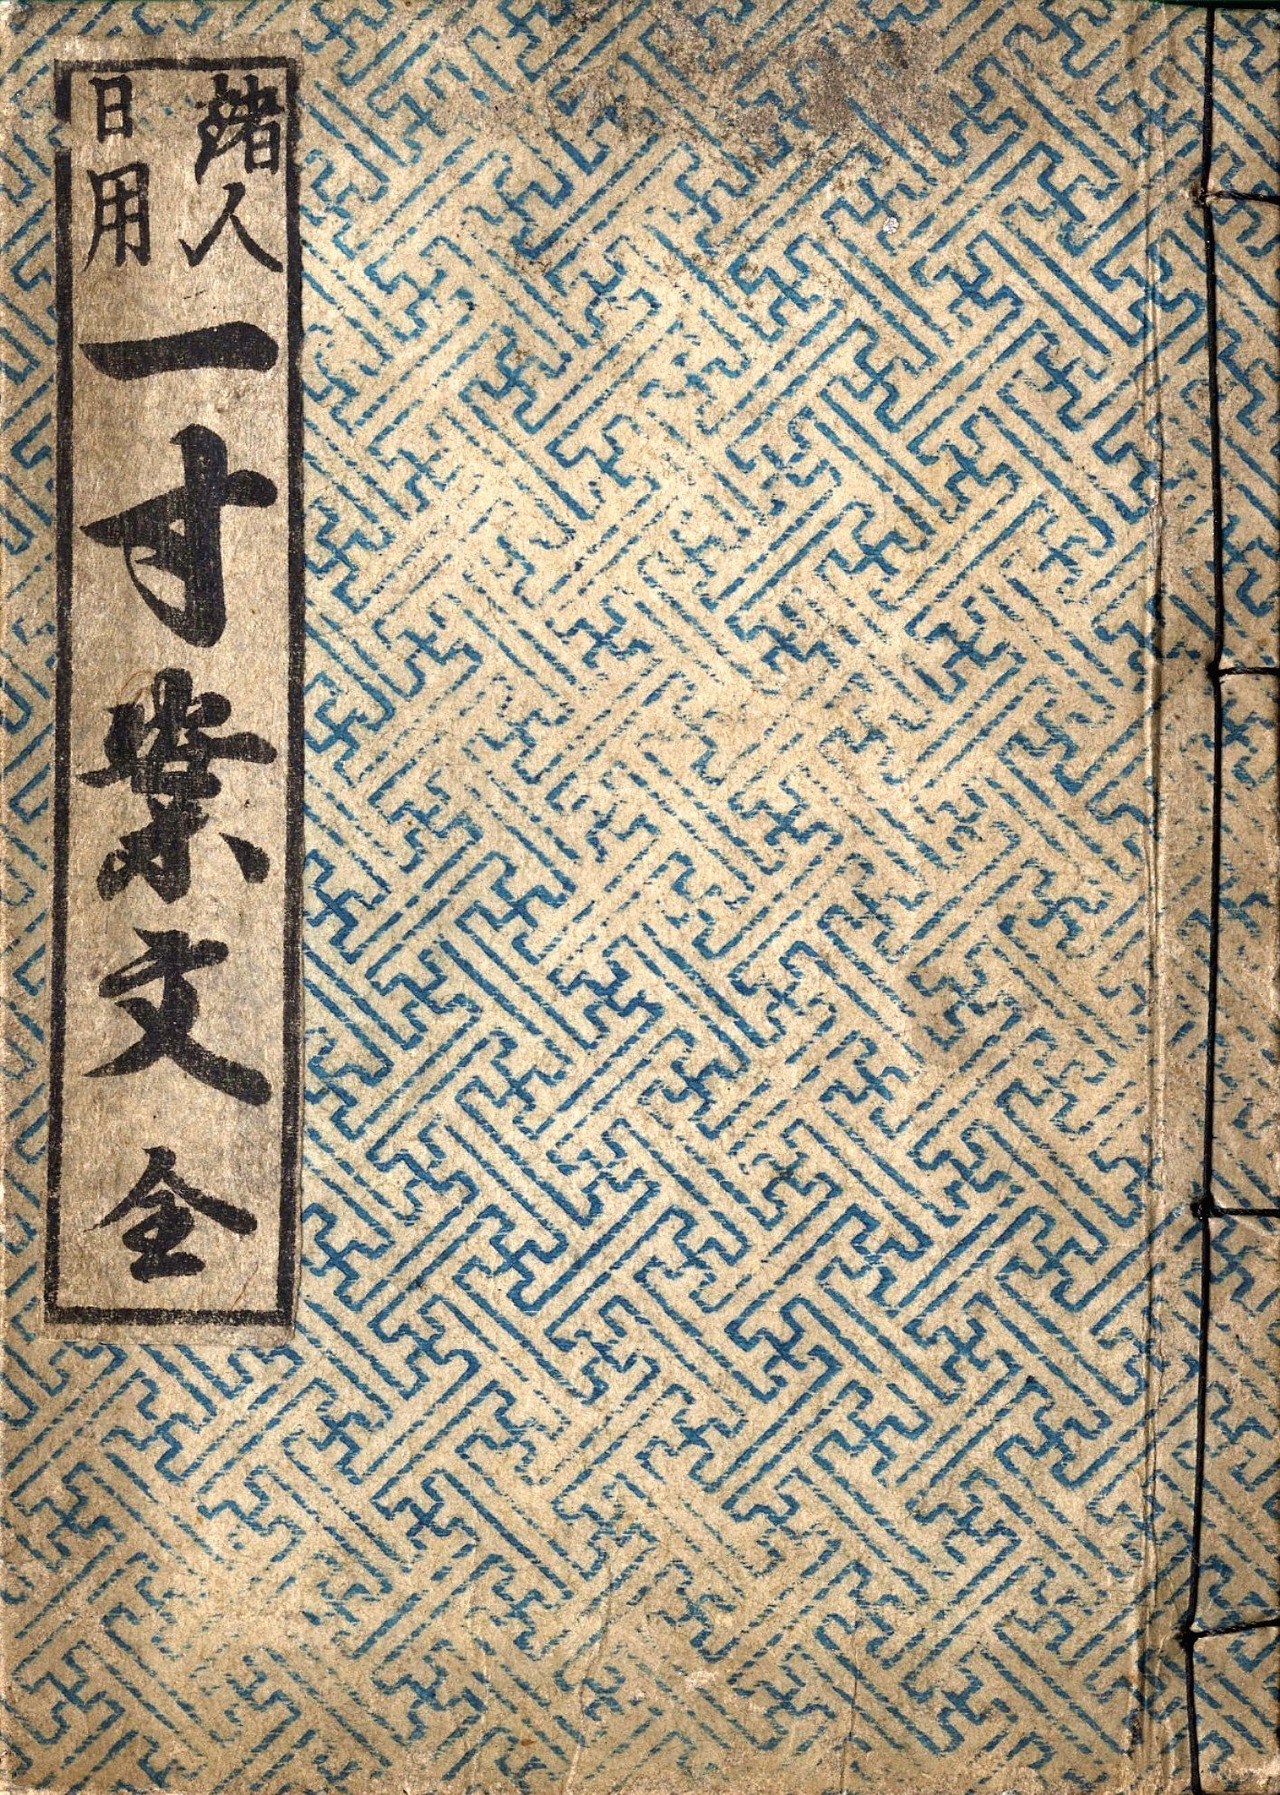 諸人
日用
一寸案文 全